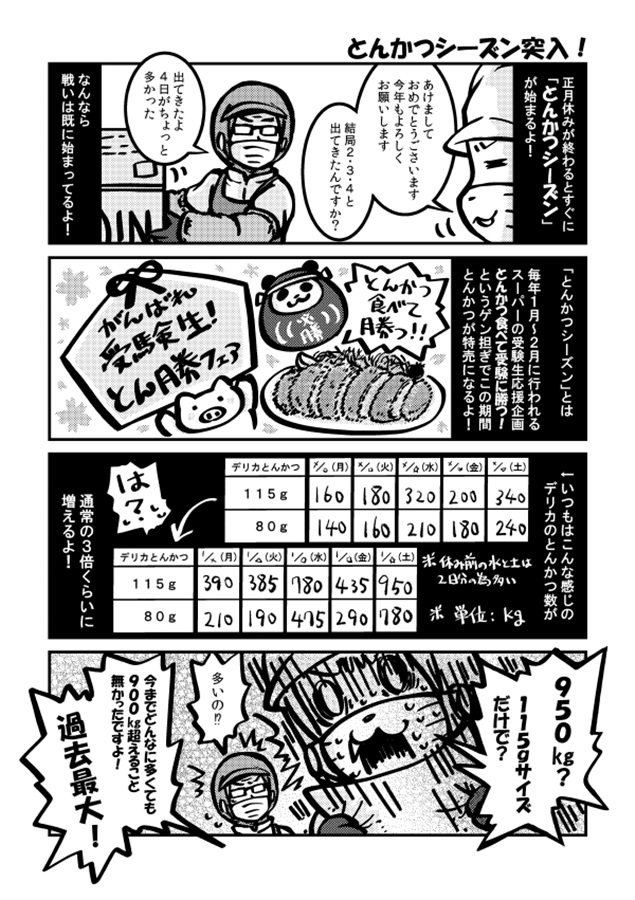 とんかつシーズン突入!
正月休みが終わるとすぐに
「とんかつシーズン」
が始まるよ!
あけまして
おめでとうございます
今年もよろしく
お願いします
結局2・3・4と
出てきたんですか?
出てきたよ
4日がちょっと
多かった
なんなら
戦いは既に始まってるよ!
「とんかつシーズン」とは
毎年1月~2月に行われる
スーパーの受験生応援企画
とんかつ食べて受験に勝つ!
というゲン担ぎでこの期間
とんかつが特売になるよ!
とんかつ
食べて
勝つ!!
必勝
がんばれ
受験生!
とん勝フェア
↓いつもはこんな感じの
デリカのとんかつ数が
デリカとんかつ (月) (火) (水) (金) (土)
115g 160 180 320 200 340
80g 140 160 210 180 240
は?
デリカとんかつ (月) (火) (水) (金) (土)
115g 390 385 780 435 950
80g 210 190 475 290 780
※休み前の水と土は
2日分の為多い
※単位:kg
通常の3倍くらいに
増えるよ!
950kg?
115gサイズ
だけで?
多いの!?
今までどんなに多くても
900kg超えること
無かったですよ!
過去最大!